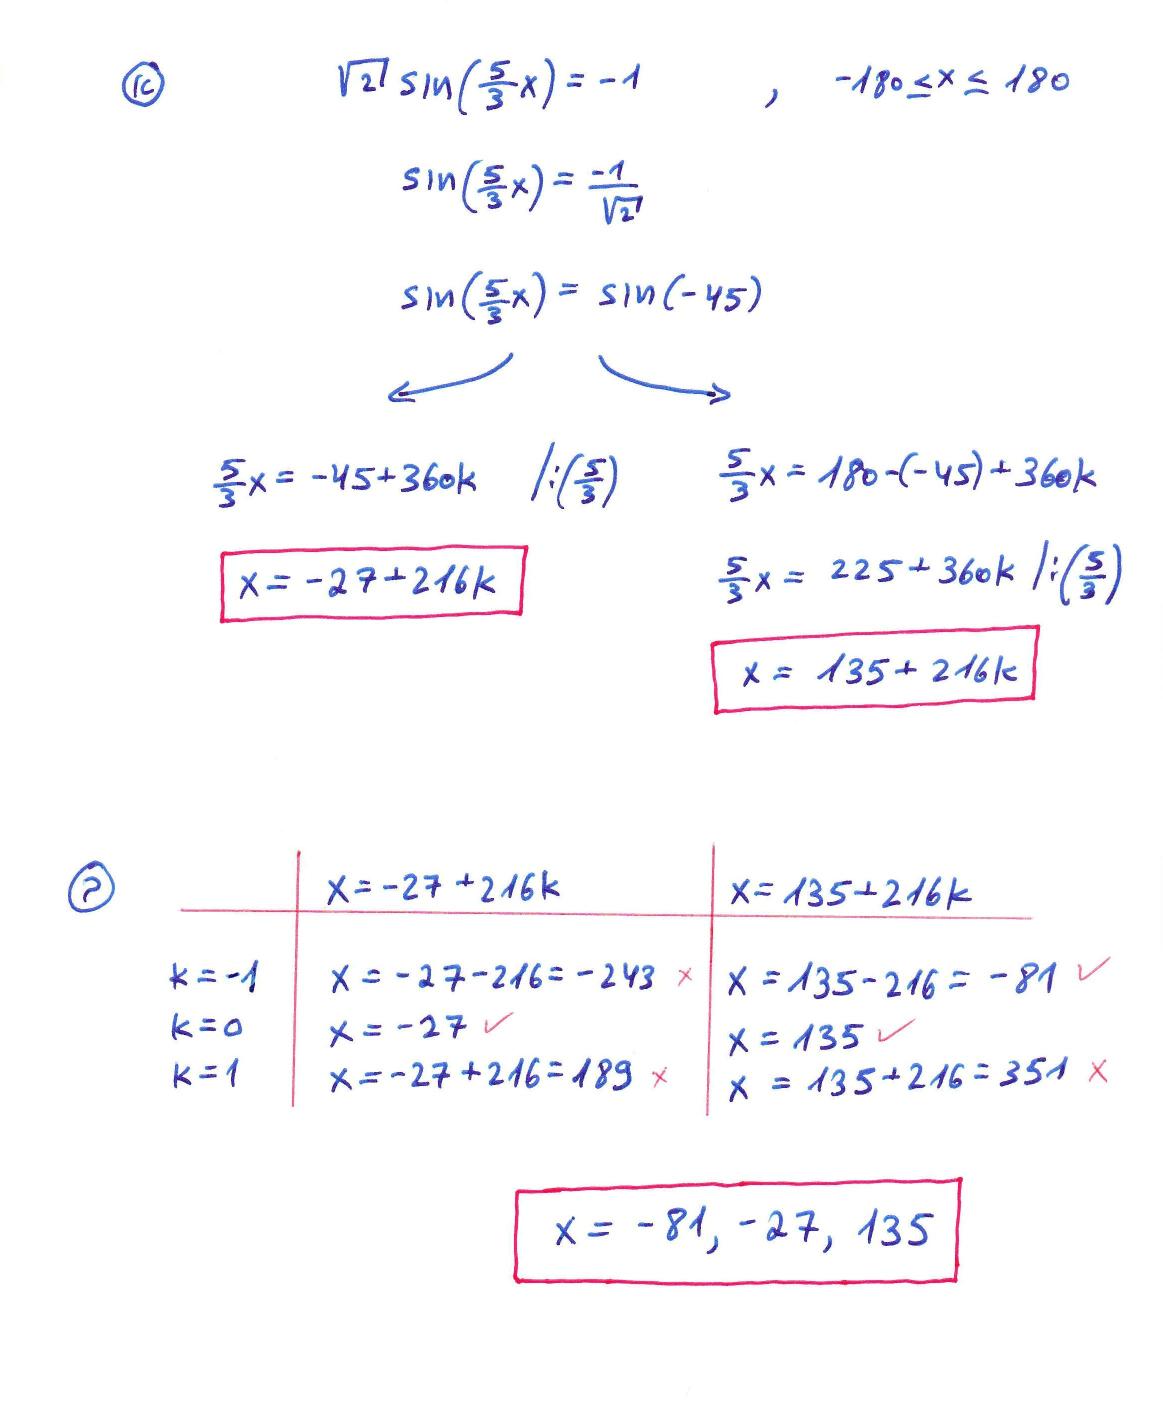 1c √2 sin(5/3 x) = -1 , -180 ≤ x ≤ 180
sin(5/3 x) = -1/√2
sin(5/3 x) = sin(-45)
5/3 x = -45+360k /:(5/3)
x = -27+216k
5/3 x = 180-(-45)+360k
5/3 x = 225+360k /:(5/3)
x = 135+216k
?
x = -27+216k x = 135+216k
k = -1 x = -27-216 = -243 × x = 135-216 = -81 ✓
k = 0 x = -27 ✓ x = 135 ✓
k = 1 x = -27+216 = 189 × x = 135+216 = 351 ×
x = -81, -27, 135